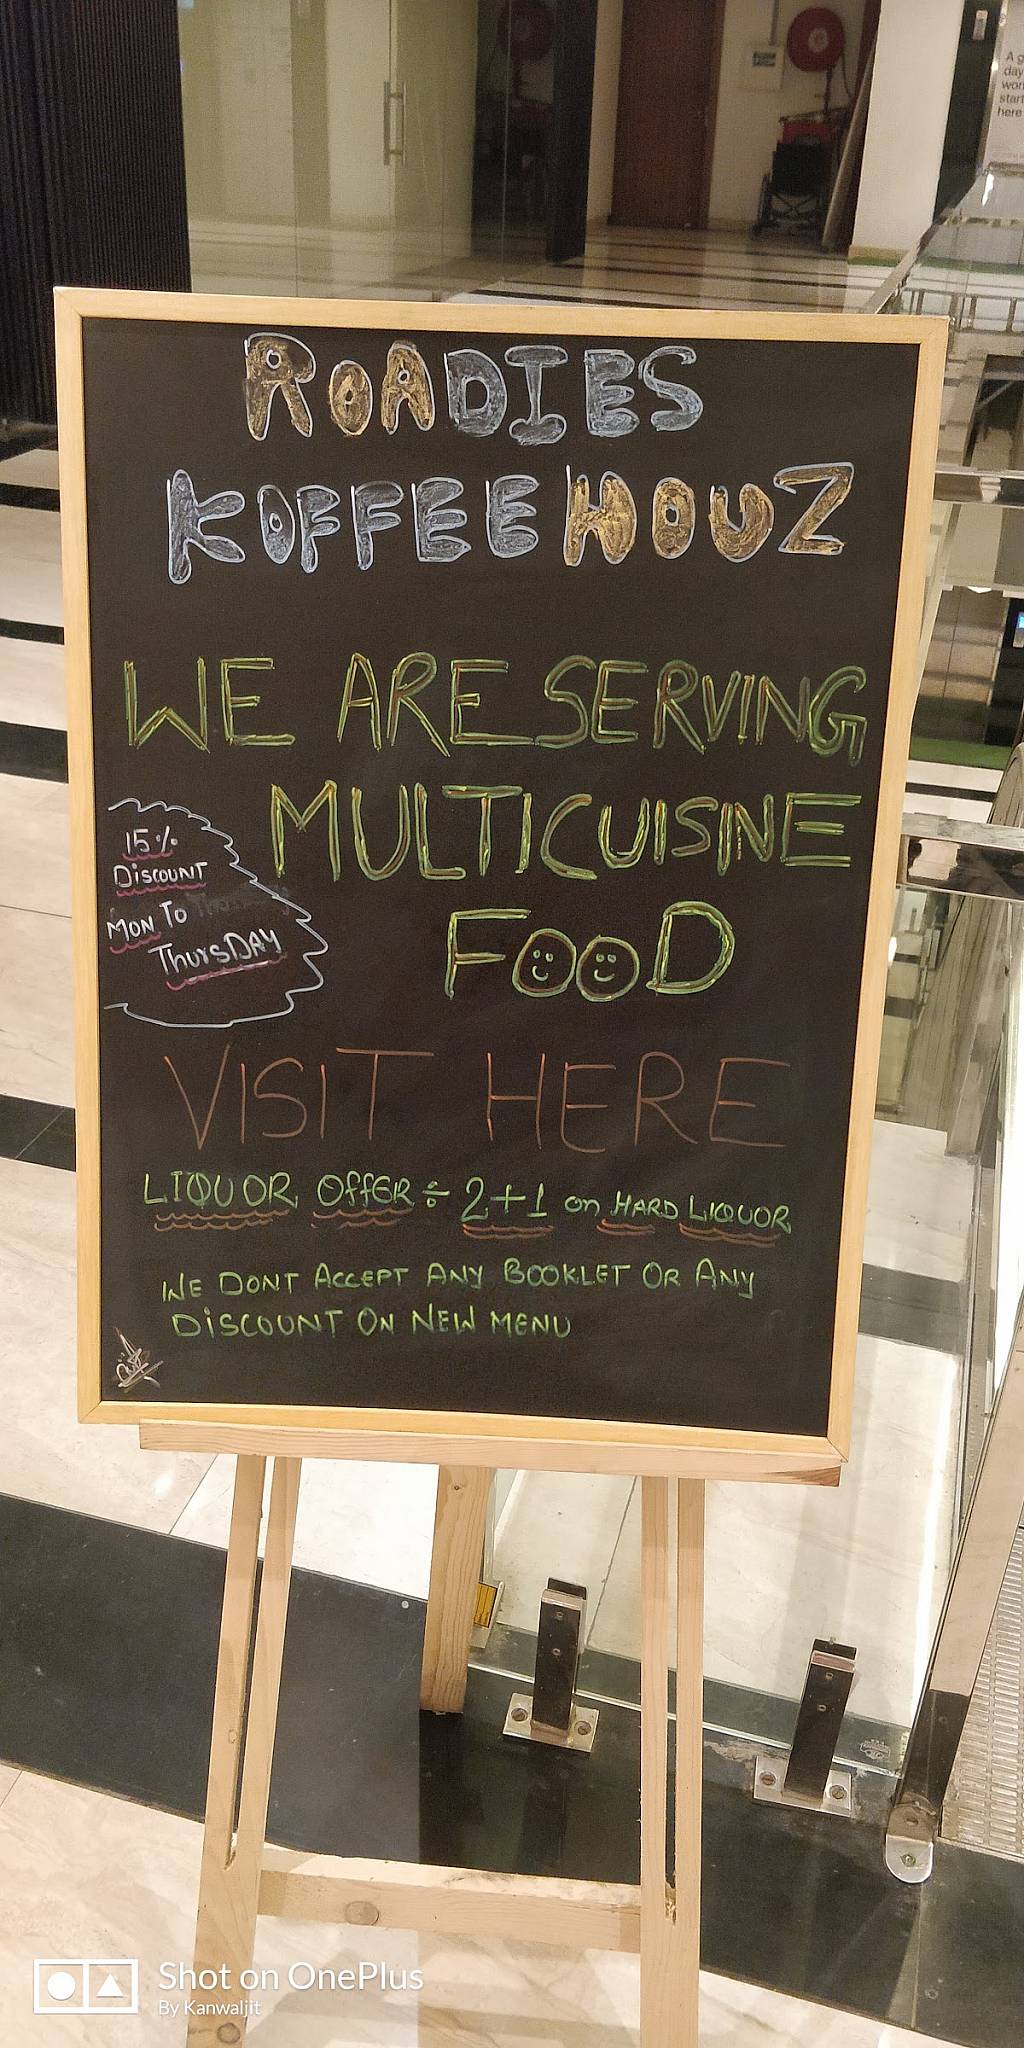 A g
day
won
start
here
ROADIES
KOFFEE HOUZ
WE ARE SERVING
MULTICUISNE
FOOD
15%
DISCOUNT
MON TO
THURSDAY
VISIT HERE
LIQUOR OFFER ÷ 2+1 on HARD LIQUOR
WE DONT ACCEPT ANY BOOKLET OR ANY
DISCOUNT ON NEW MENU
Shot on OnePlus
By Kanwaljit